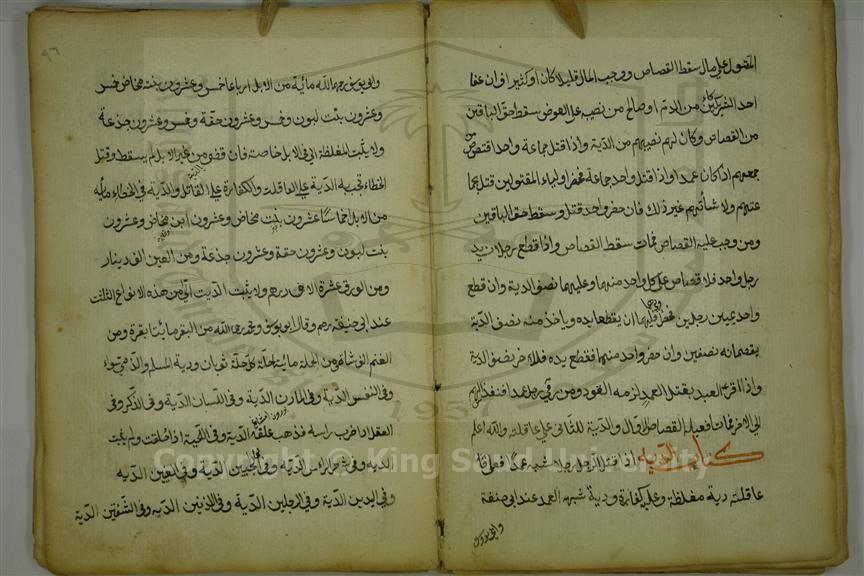 المقتول على مال سقط القصاص ووجب المال قليلا كان او كثيرا فان عفا
احد الشركاء من الدم او صالح من نصيبه على العوض سقط حق الباقين
من القصاص وكان لهم نصيبهم من الدية واذا قتل جماعة واحدا اقتص من
جميعهم اذا كان عمدا واذا قتل واحد جماعة فحضر اولياء المقتولين قتل بجما
عتهم ولا شئ لهم غير ذلك فان حضر واحد قتل وسقط حق الباقين
ومن وجب عليه القصاص فمات سقط القصاص واذا قطع رجلان يد
رجل واحد فلا قصاص على كل واحد منهما وعليهما نصف الدية وان قطع
واحد يمين رجلين فحضرا فلهما ان يقطعا يده وياخذ منه نصف الدية
يقسمانه نصفين وان حضر واحد منهما فقطع يده فللاخر نصف الدية
واذا اقر العبد بقتل العمد لزمه القود ومن رمى رجلا عمدا فنفذ السهم
الى الاخر فمات فعليه القصاص للاول والدية للثانى على عاقلته والله اعلم
كتاب الدية اذا قتل الرجل رجلا شبه عمد فعلى
عاقلته دية مغلظة وعليه كفارة ودية شبه العمد عند ابى حنيفة
وابى يوسف
٩٦
وابى يوسف رحمهما الله مائة من الابل ارباعا خمس وعشرون بنت مخاض وخمس
وعشرون بنت لبون وخمس وعشرون حقة وخمس وعشرون جذعة
ولا يثبت المغلظة الا فى الابل خاصة فان قضى من غير الابل لم يتغلظ وقتل
الخطاء تجب به الدية على العاقلة والكفارة على القاتل والدية فى الخطاء مائة
من الابل اخماسا عشرون بنت مخاض وعشرون ابن مخاض وعشرون
بنت لبون وعشرون حقة وعشرون جذعة ومن العين الف دينار
ومن الورق عشرة الاف درهم ولا يثبت الدية الا من هذه الانواع الثلثة
عند ابى حنيفة رحمه وقال ابو يوسف ومحمد رحمهما الله من البقر مائتا بقرة ومن
الغنم الف شاة ومن الحلة مائة حلة كل حلة ثوبان ودية المسلم والذمى سواء
وفى النفس الدية وفى المارن الدية وفى اللسان الدية وفى الذكر وفى
العقل اذا ضرب راسه فذهب عقله الدية وفى اللحية اذا حلقت ولم ينبت
الدية وفى شعر الراس الدية وفى الحاجبين الدية وفى العينين الدية
وفى اليدين الدية وفى الرجلين الدية وفى الاذنين الدية وفى الشفتين الدية
Copyright © King Saud University
1957